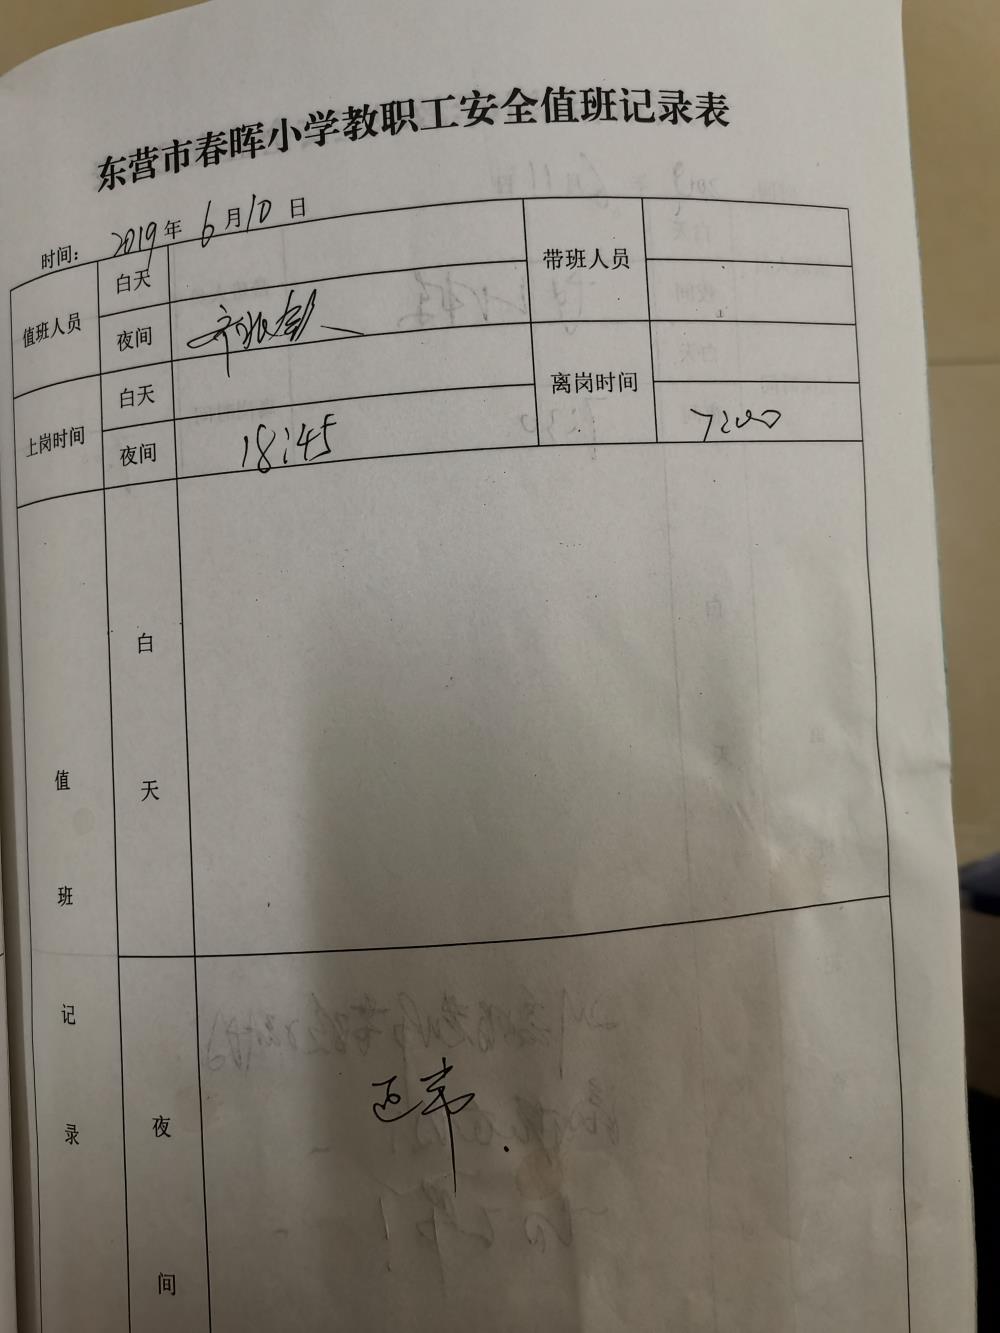 东营市春晖小学教职工安全值班记录表
时间: 2019年6月10日
值班人员 白天 带班人员
夜间
上岗时间 白天 离岗时间
夜间 18:45 7:00
值班记录
白天
夜间
正常.